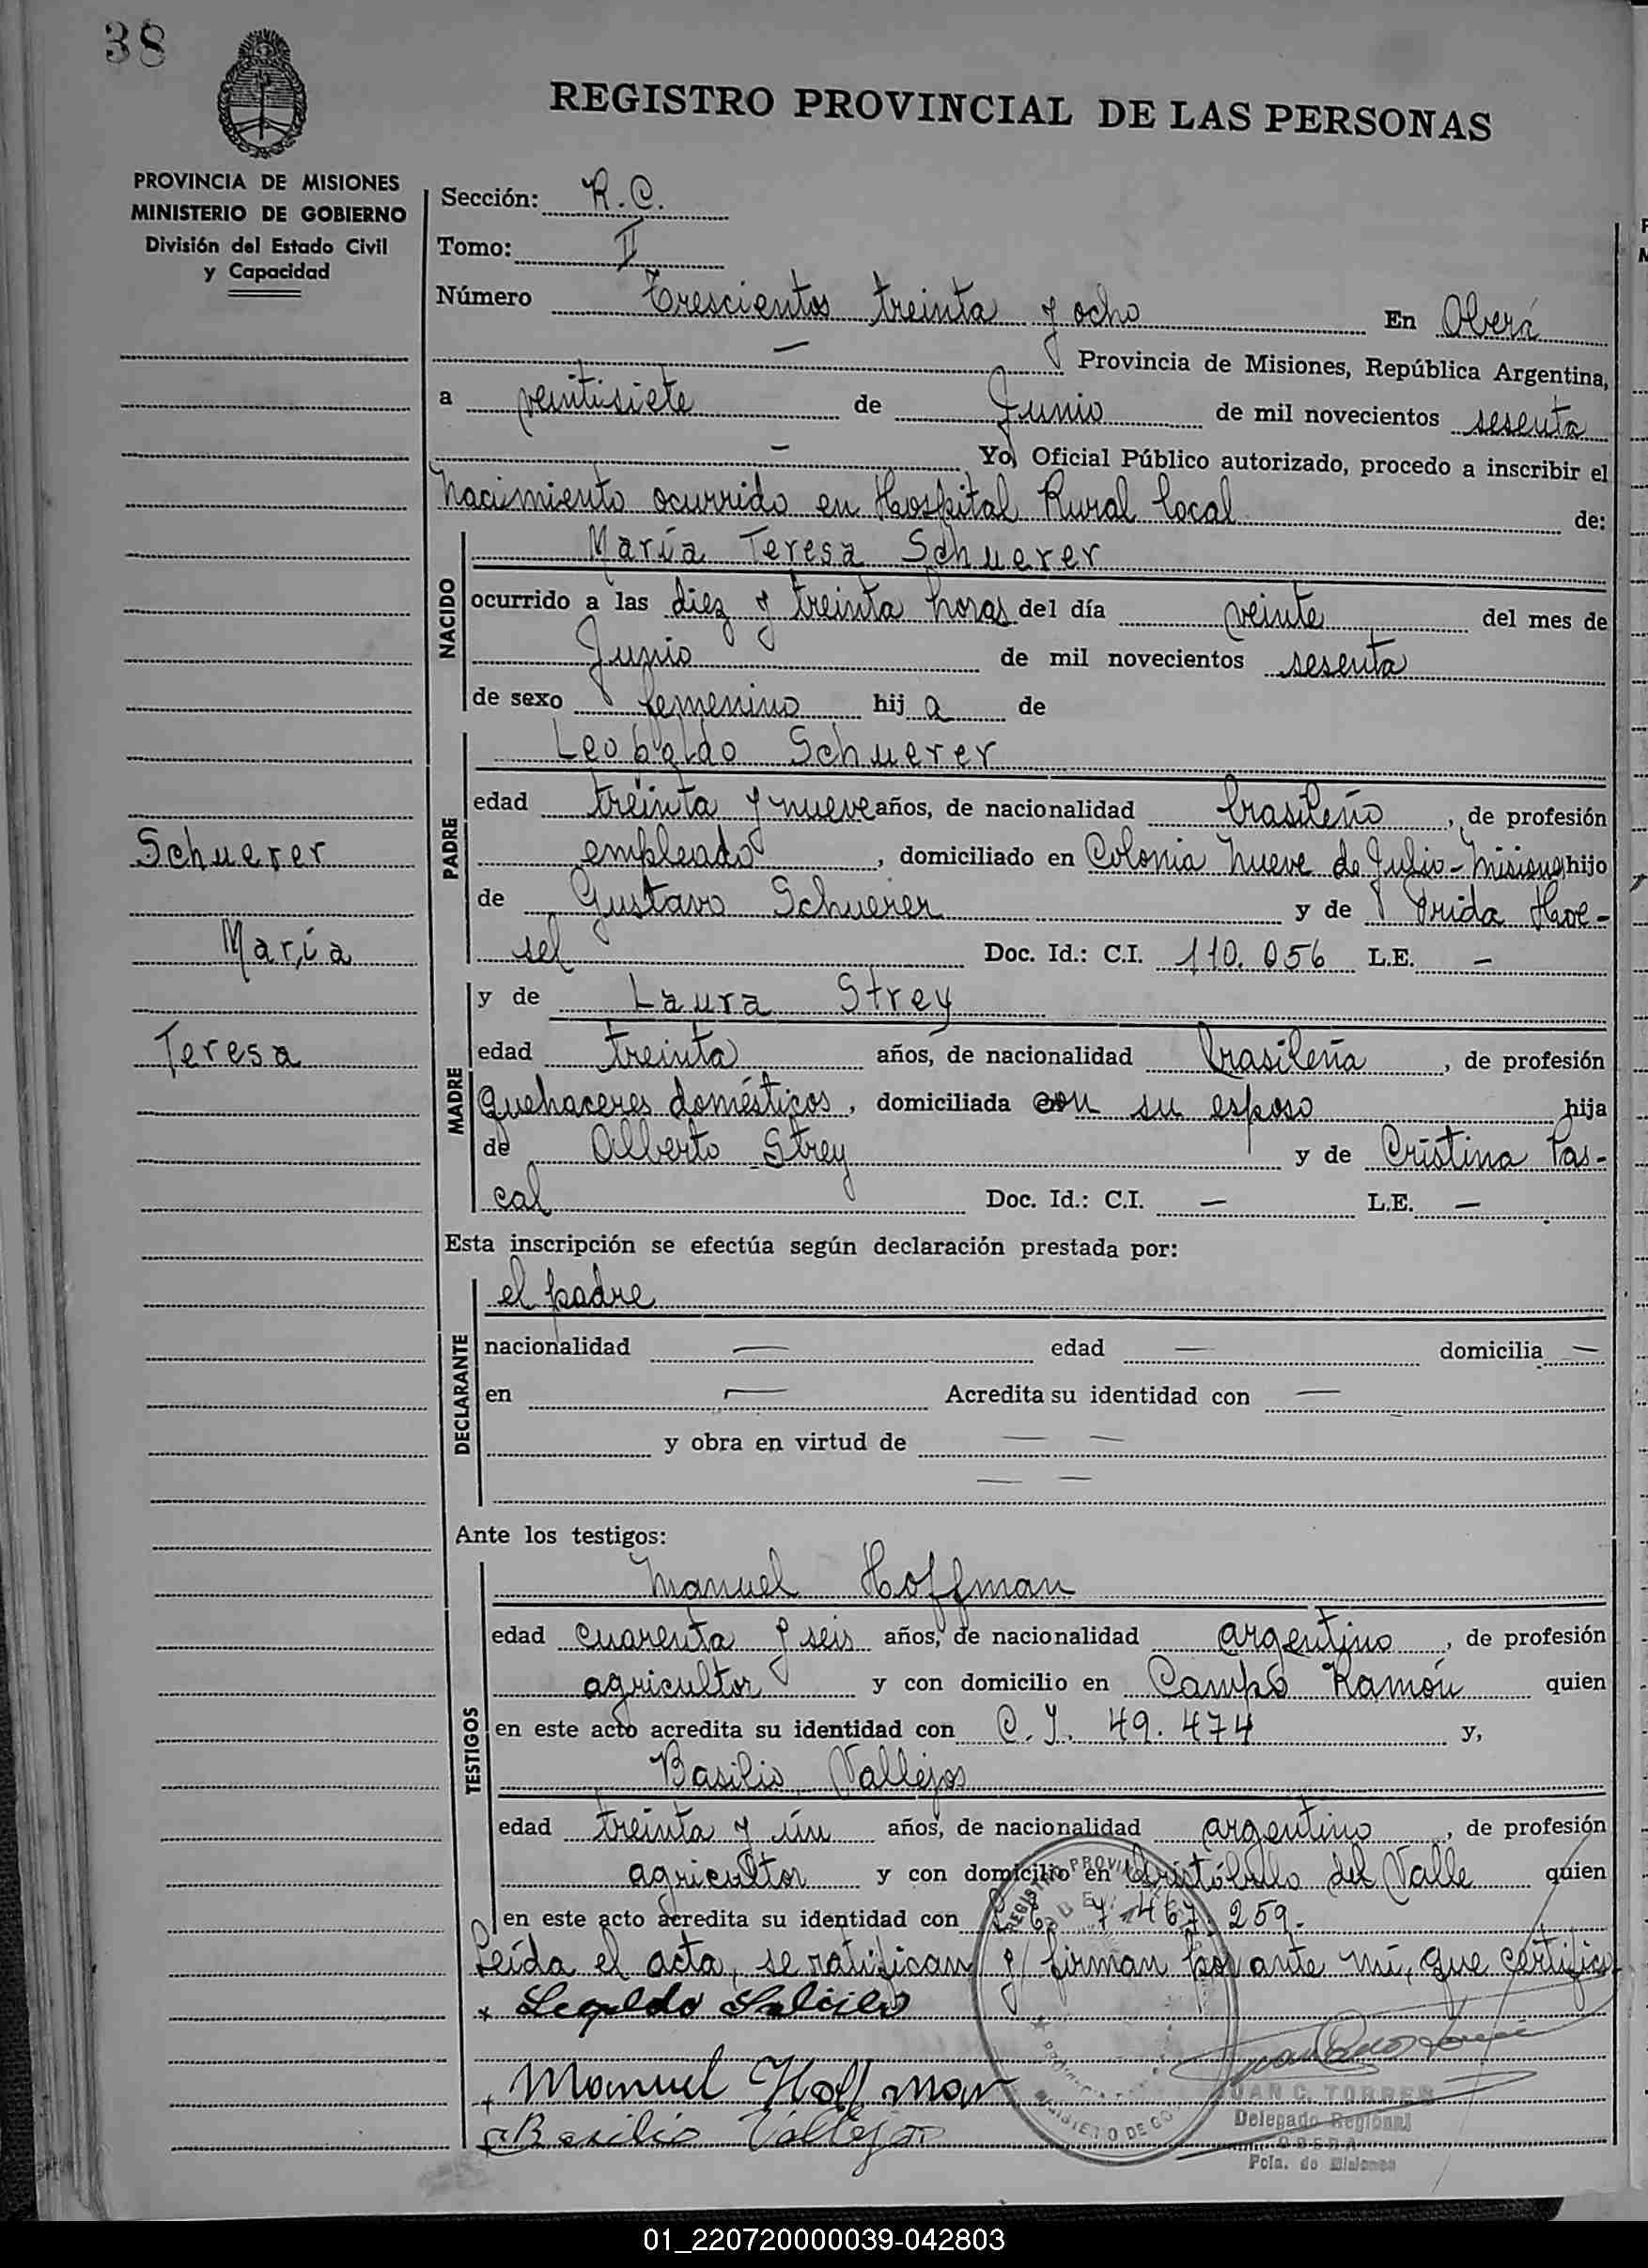 38
REGISTRO PROVINCIAL DE LAS PERSONAS
PROVINCIA DE MISIONES
MINISTERIO DE GOBIERNO
División del Estado Civil
y Capacidad
Sección: R.C.
Tomo: II
Número Trescientos treinta y ocho En Oberá
Provincia de Misiones, República Argentina,
a veintisiete de Junio de mil novecientos sesenta
Yo, Oficial Público autorizado, procedo a inscribir el
Nacimiento ocurrido en Hospital Rural local de:
NACIDO
María Teresa Schuerer
ocurrido a las diez y treinta horas del día veinte del mes de
Junio de mil novecientos sesenta
de sexo femenino hij a de
PADRE
Leobaldo Schuerer
edad treinta y nueve años, de nacionalidad brasileño, de profesión
empleado, domiciliado en Colonia Nueve de Julio - Misiones hijo
de Gustavo Schuerer y de Frida Hoe-
sel Doc. Id.: C.I. 110.056 L.E. —
Schuerer
María
Teresa
MADRE
y de Laura Strey
edad treinta años, de nacionalidad brasileña, de profesión
quehaceres domésticos, domiciliada con su esposo hija
de Alberto Strey y de Cristina Pas-
cal Doc. Id.: C.I. — L.E. —
Esta inscripción se efectúa según declaración prestada por:
DECLARANTE
el padre
nacionalidad — edad — domicilia —
en — Acredita su identidad con —
y obra en virtud de — —
— —
Ante los testigos:
TESTIGOS
Manuel Hoffman
edad cuarenta y seis años, de nacionalidad argentino, de profesión
agricultor y con domicilio en Campo Ramón quien
en este acto acredita su identidad con C.I. 49.474 y,
Basilio Vallejos
edad treinta y un años, de nacionalidad argentino, de profesión
agricultor y con domicilio en Aristóbulo del Valle quien
en este acto acredita su identidad con 7.467.259.
Leída el acta, se ratifican y firman por ante mí, que certifico.
Manuel Hoffman
Basilio Vallejos
JUAN C. TORRES
Delegado Regional
OBERA
Pcia. de Misiones
01_220720000039-042803